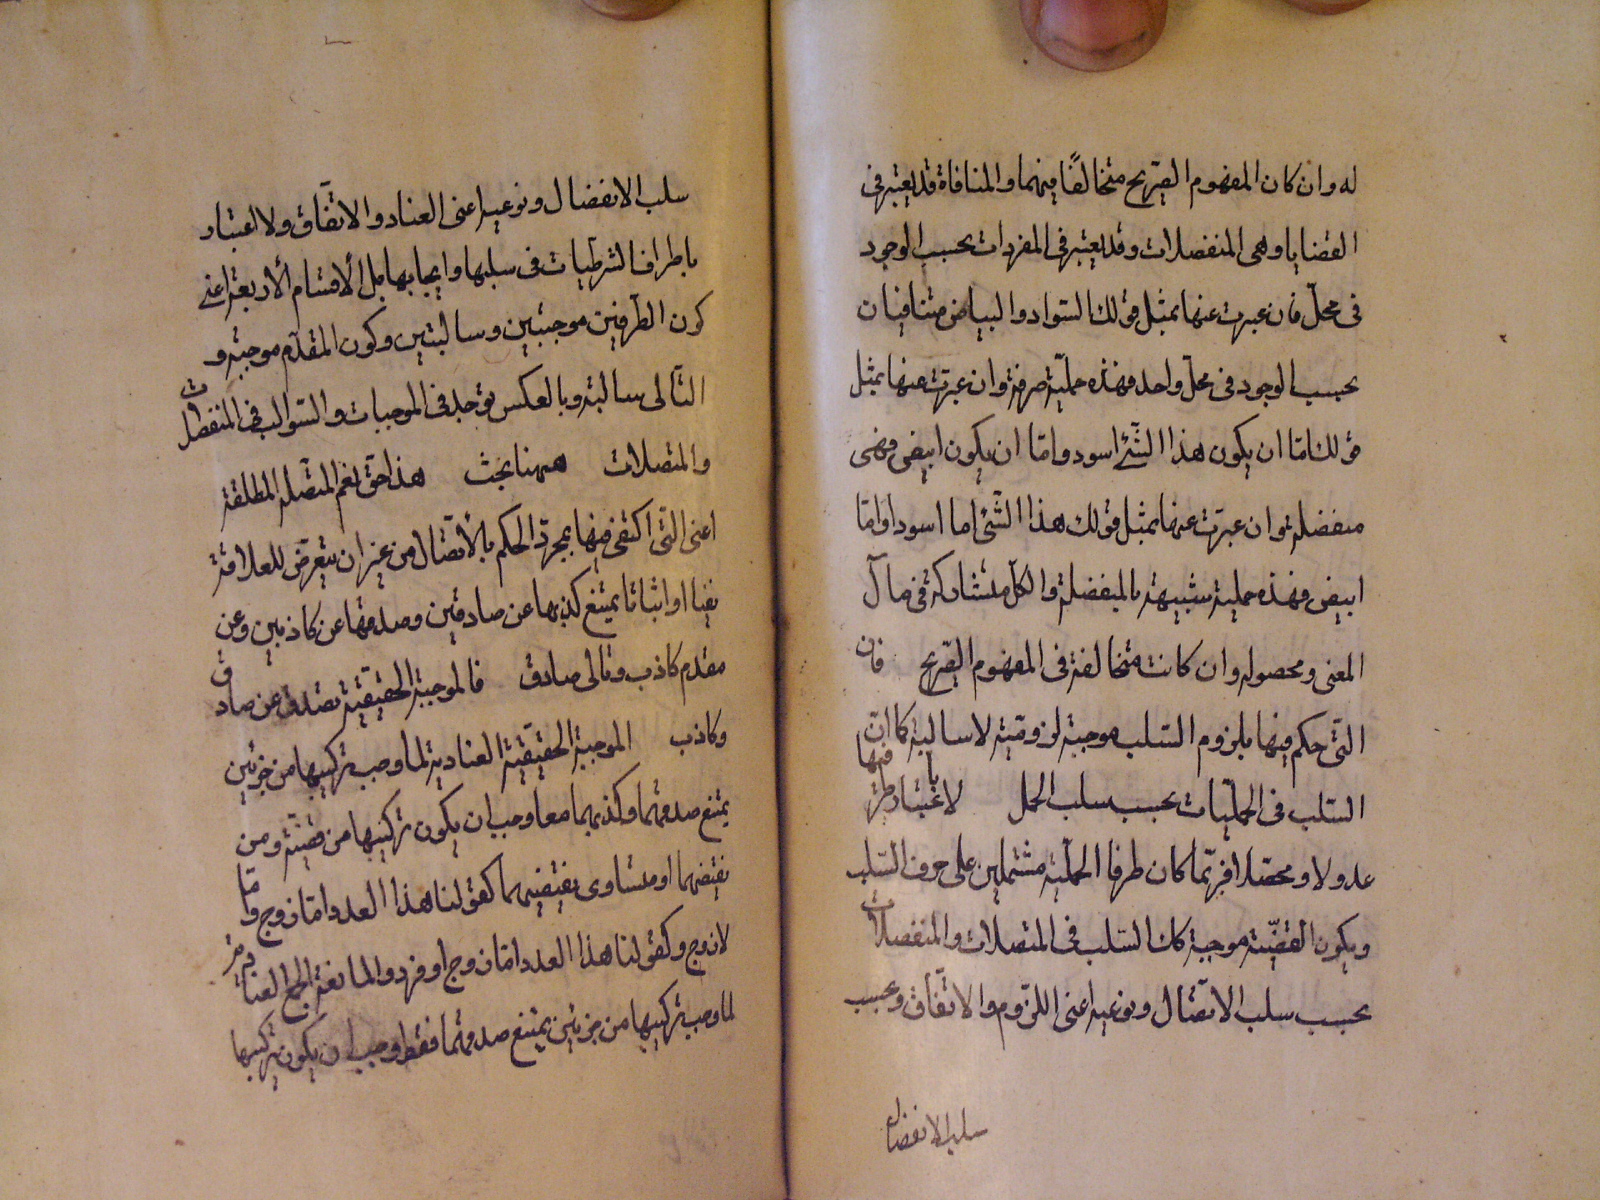 له وان كان المفهوم الصّريح متخالفًا فيهما والمنافاة قد يعتبر فى
القضايا وهى المنفصلات وقد يعتبر فى المفردات بحسب الوجود
فى محلّ فان عبرت عنها بمثل قولك السّواد والبياض متنافيان
بحسب الوجود فى محلّ واحد فهذه حمليّة صرفة وان عبّرت عنها بمثل
قولك امّا ان يكون هذا الشّئ اسود وامّا ان يكون ابيض فهى
منفصلة وان عبّرت عنها بمثل قولك هذا الشّئ اما اسود او امّا
ابيض فهذه حملية شبيهة بالمنفصلة والكلّ متشاركة فى مآل
المعنى ومحصوله وان كانت متخالفة فى المفهوم الصّريح فان
التى حكم فيها بلزوم السّلب موجبة لزوميّة لا سالبة كما انّ
السّلب فى الحمليّات بحسب سلب الحمل لا باعتبار طرفيها
عدولا ومحصّلا فربّما كان طرفا الحمليّة مشتملين على حرف السّلب
ويكون القضيّة موجبة كان السّلب فى المتصلات والمنفصلات
بحسب سلب الاتّصال ونوعيه اعنى اللّزوم والاتّفاق وبحسب
سلب الانفصال
سلب الانفصال ونوعيه اعنى العناد والاتّفاق ولا اعتبار
باطراف الشرطيات فى سلبها وايجابها بل الأقسام الأربعة اعنى
كون الطّرفين موجبتين وسالبتين وكون المقدّم موجبة و
التّالى سالبة وبالعكس يوجد فى الموجبات والسّوالب فى المنفصلات
والمتصلات ههنا بحث هذا حق نعم المتّصلة المطلقة
اعنى التّى اكتفى فيها بمجرّد الحكم بالأتّصال من غير ان يتعرّض للعلاقة
نفيا او اثباتا يمتنع كذبها عن صادقين وصدقها عن كاذبين وعن
مقدم كاذب وتالى صادق فالموجبة الحقيقيّة تصدق عن صادق
وكاذب الموجبة الحقيقيّة العنادية لما وجب تركيبها من جزئين
يمتنع صدقهما وكذبهما معا وجب ان يكون تركيبها من قضيّة ومن
نقيضها او مساوى نقيضها كقولنا هذا العدد امّا زوج وامّا
لا زوج وكقولنا هذا العدد امّا زوج او فرد والمانعة الجمع العنادية
لما وجب تركيبها من جزئين يمتنع صدقهما فقط وجب ان يكون تركيبها